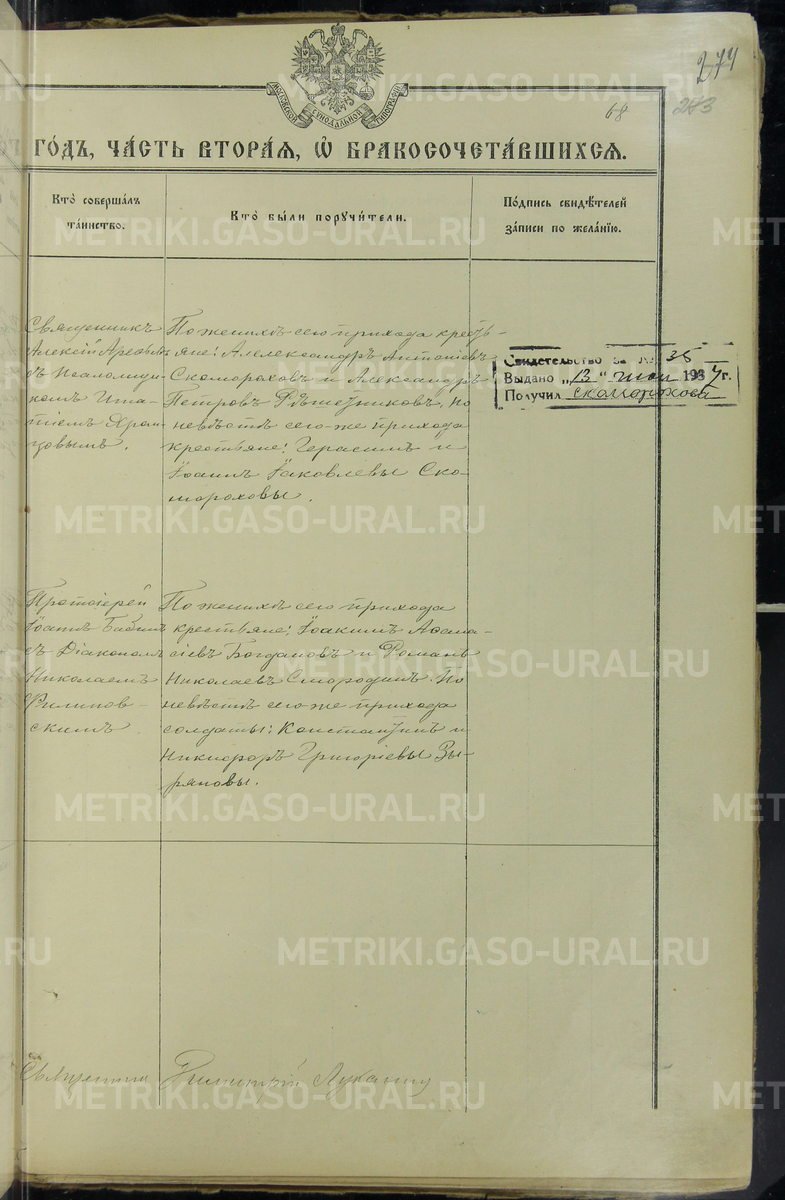 274
68
273
МОСКОВСКОЙ СИНОДАЛЬНОЙ ТИПОГРАФІИ
ГО́ДЪ, ЧА́СТЬ ВТОРА́Я, Ѡ҆ БРАКОСОЧЕТА́ВШИХСЯ.
Кто̀ соверша́лъ
та́инство.
Кто̀ бы́ли порꙋчи́тели.
По́дпись свидѣ́телей
за́писи по жела́нїю.
Священникъ
Алексій
съ Псаломщи-
комъ Ипа-
тіемъ
цовымъ.
По женихѣ сего прихода кресть-
яне: Александръ Антоніевъ
Скомороховъ и Александръ
Петровъ Рѣшетниковъ, по
невѣстѣ сего-же прихода
крестьяне: Герасимъ и
Іоаннъ Іаковлевы Ско-
мороховы.
Свидетельство за № 35
Выдано „13“ 1937г.
Получил Скоморохова
Протоіерей
Іоаннъ
съ Діакономъ
Николаемъ
Филипов-
скимъ
По женихѣ сего прихода
крестьяне: Іоакимъ Аѳана-
сіевъ Богдановъ и Романъ
Николаевъ Смородинъ. По
невѣстѣ сего же прихода
солдаты: Константинъ и
Никифоръ Григоріевы Зы-
ряновы.
Священникъ Димитрій Луканинъ
METRIKI.GASO-URAL.RU